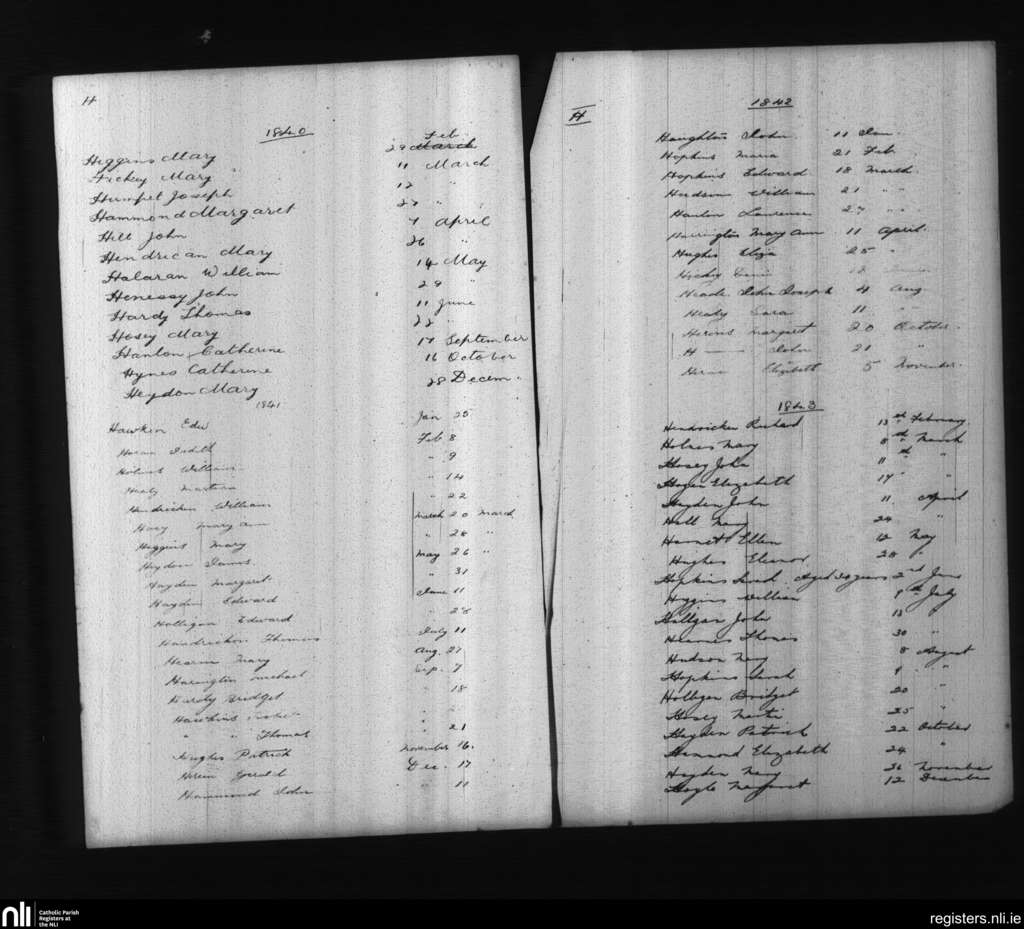 H
1840
Higgins Mary 29 Feb March
Hickey Mary 11 March
Humpet Joseph 12 "
Hammond Margaret 27 " "
Hill John 7 April
Hendrican Mary 26 "
Halaran William 14 May
Henessy John 29 "
Hardy Thomas 11 June
Hosey Mary 22 "
Hanlon Catherine 17 September
Hynes Catherine 16 October
Heydon Mary 28 Decem.
1841
Hawkin Edw Jan 25
Judith Feb 8
Holmes William " 9
Healy " 14
Hendricken William " 22
Hoey Mary ann March 20 March
Higgins Mary " 28 "
Heydon James May 26 "
Hayden Margaret " 31
Hayden Edward June 11
Holligan Edward " 28
Hendricken Thomas July 11
Hearn Mary Aug. 27
Harington Michael Sep. 7
Hardy Bridget " 18
Hawkins "
" " Thomas " 21
Hughes Patrick November 16.
Dec. 17
Hammond John " 11
H
1842
Haughton John 11 Jan
Hopkins Maria 21 Feb
Hopkins Edward 18 March.
Hudson William 21 " "
Hanlon Lawrence 27 " "
Harrington Mary Ann 11 April.
Hughes Eliza 25 "
Hickey 18
Heade John Joseph 4 Aug
Healy Sara 11 "
Margaret 20 October.
H—— John 21 "
Elizabeth 5 November.
1843
Hendricken Richard 13th February
Holmes Mary 8th March
Hosey John 11th "
Hogan Elizabeth 17 " "
Heyden John 11 April
Holt Mary 24 "
Harnet Ellen 12 May
Hughes Eleanor 28 "
Hopkins Sarah. Aged 34 years 2nd June
Higgins William 9th July
Holligan John 13 "
Thomas 30 "
Hudson Mary 8 August
Hopkins Sarah 9 . "
Holligan Bridget 20 "
Hosey Martin 25 "
Heyden Patrick 22 October
Hammond Elizabeth 24 "
Heyden Mary 26 November
Hoyle Margaret 12 December
nli
Catholic Parish
Registers at
the NLI
registers.nli.ie